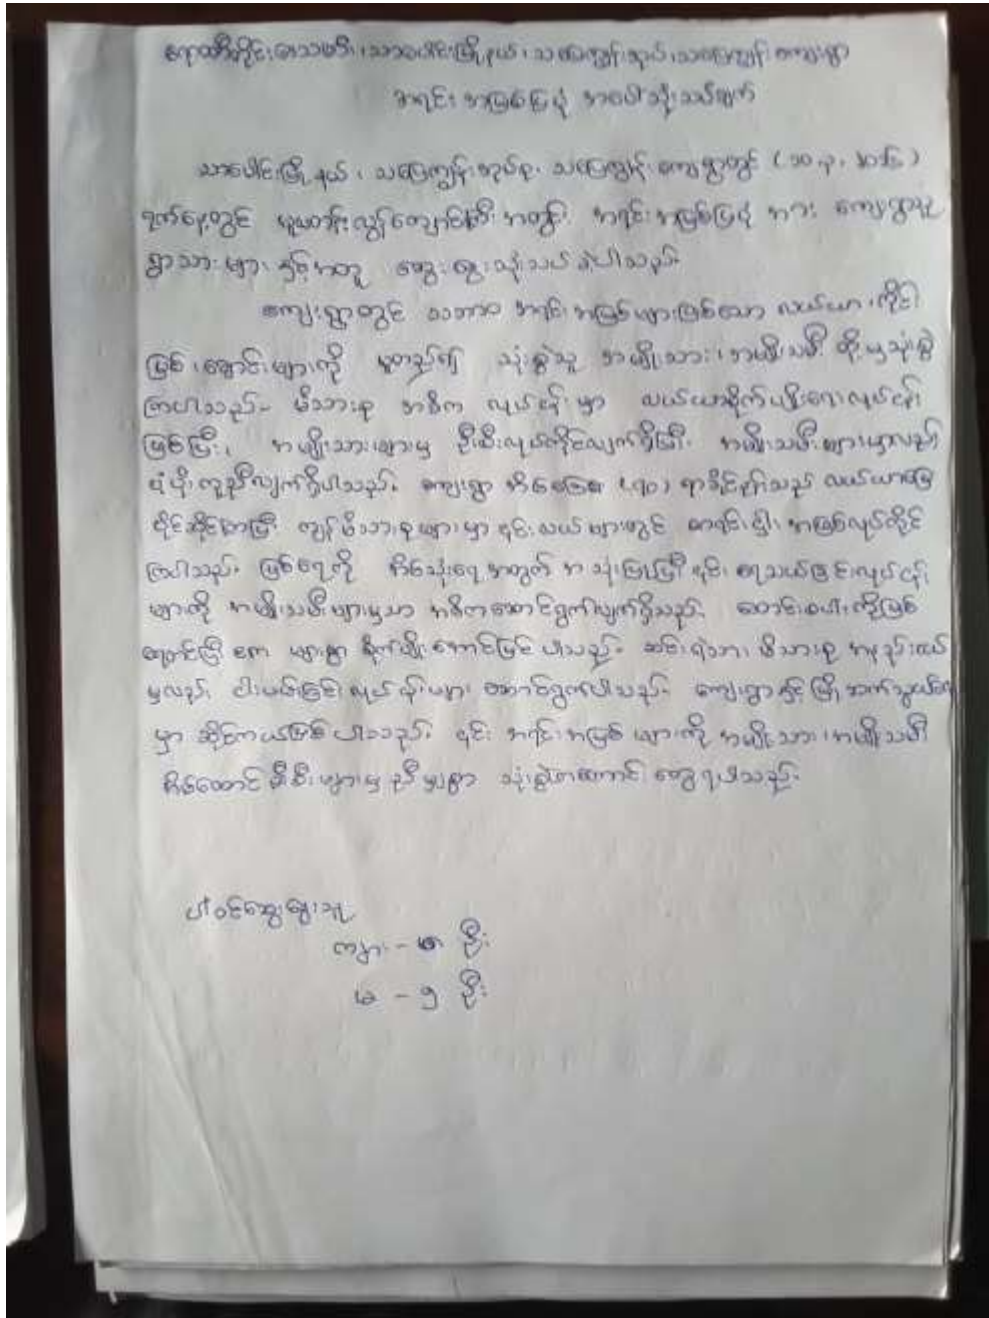 ဧရာဝတီတိုင်းဒေသကြီး၊ သာပေါင်းမြို့နယ်၊ သပြေကျွန်းအုပ်စု၊ သပြေကျွန်း ကျေးရွာ
အရင်းအမြစ်ပြပုံ အပေါ်သုံးသပ်ချက်
သာပေါင်းမြို့နယ်၊ သပြေကျွန်းအုပ်စု၊ သပြေကျွန်းကျေးရွာတွင်
ရက်နေ့တွင် အရင်းအမြစ်ပြပုံ အား ကျေးရွာသူ
ရွာသားများ နှင့်အတူ ဆွေးနွေးသုံးသပ် ခဲ့ပါသည်။
ကျေးရွာတွင် သဘာဝ အရင်းအမြစ်များဖြစ်သော လယ်ယာ၊ ကိုင်း၊
မြစ်၊ ချောင်းများကို မှတည်၍ သုံးစွဲသူ အမျိုးသား၊ အမျိုးသမီး တို့မှသုံးစွဲ
ကြပါသည်။ မိသားစု အဓိက လုပ်ငန်းမှာ လယ်ယာစိုက်ပျိုးရေးလုပ်ငန်း
ဖြစ်ပြီး၊ အမျိုးသားများမှ ဦးစီးလုပ်ကိုင်လျက်ရှိပြီး၊ အမျိုးသမီးများမှလည်း
ပံ့ပိုးကူညီလျက်ရှိပါသည်။ ကျေးရွာ အိမ်ခြေ၏ (၇၀) ရာခိုင်နှုန်းသည် လယ်ယာမြေ
ပိုင်ဆိုင်ကြပြီး ကျန်မိသားစုများမှာ ၎င်းလယ်များတွင် အဖြစ်လုပ်ကိုင်
ကြပါသည်။ မြစ်ရေကို အိမ်သုံးရေအတွက် အသုံးပြုပြီး ၎င်း ရေသယ်ခြင်းလုပ်ငန်း
များကို အမျိုးသမီးများမှသာ အဓိကဆောင်ရွက်လျက်ရှိသည်။
များစွာ ဆင်းရဲသား မိသားစု အနည်းငယ်
မှလည်း ငါးဖမ်းခြင်းလုပ်ငန်းများ ဆောင်ရွက်ပါသည်။ ကျေးရွာနှင့်မြို့ ဆက်သွယ်ရေး
မှာ ဆိုင်ကယ်ဖြစ်ပါသည်။ ၎င်း အရင်းအမြစ် များကို အမျိုးသား၊ အမျိုးသမီး
အိမ်ထောင်ဦးစီးများမှ ညီမျှစွာ သုံးစွဲတာကောင်း တွေ့ရပါသည်။
ပါဝင်ဆွေးနွေးသူ
ကျား - ၈ ဦး
မ - ၅ ဦး